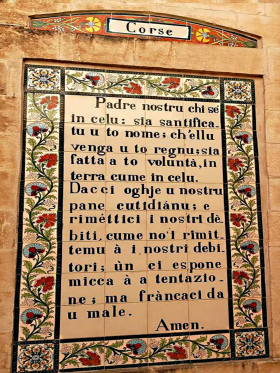 Corse
Padre nostru chì sè
in celu: sia santifica.
tu u to nome; ch'ellu
venga u to regnu; sia
fatta a to voluntà, in
terra cume in celu.
Dacci oghje u nostru
pane cutidiánu; e
riméttici i nostri dè.
biti, cume no'i rimit.
temu à i nostri debi.
tori; ùn ci espone
micca à a tentazio.
ne; ma fràncaci da
u male.
Amen.